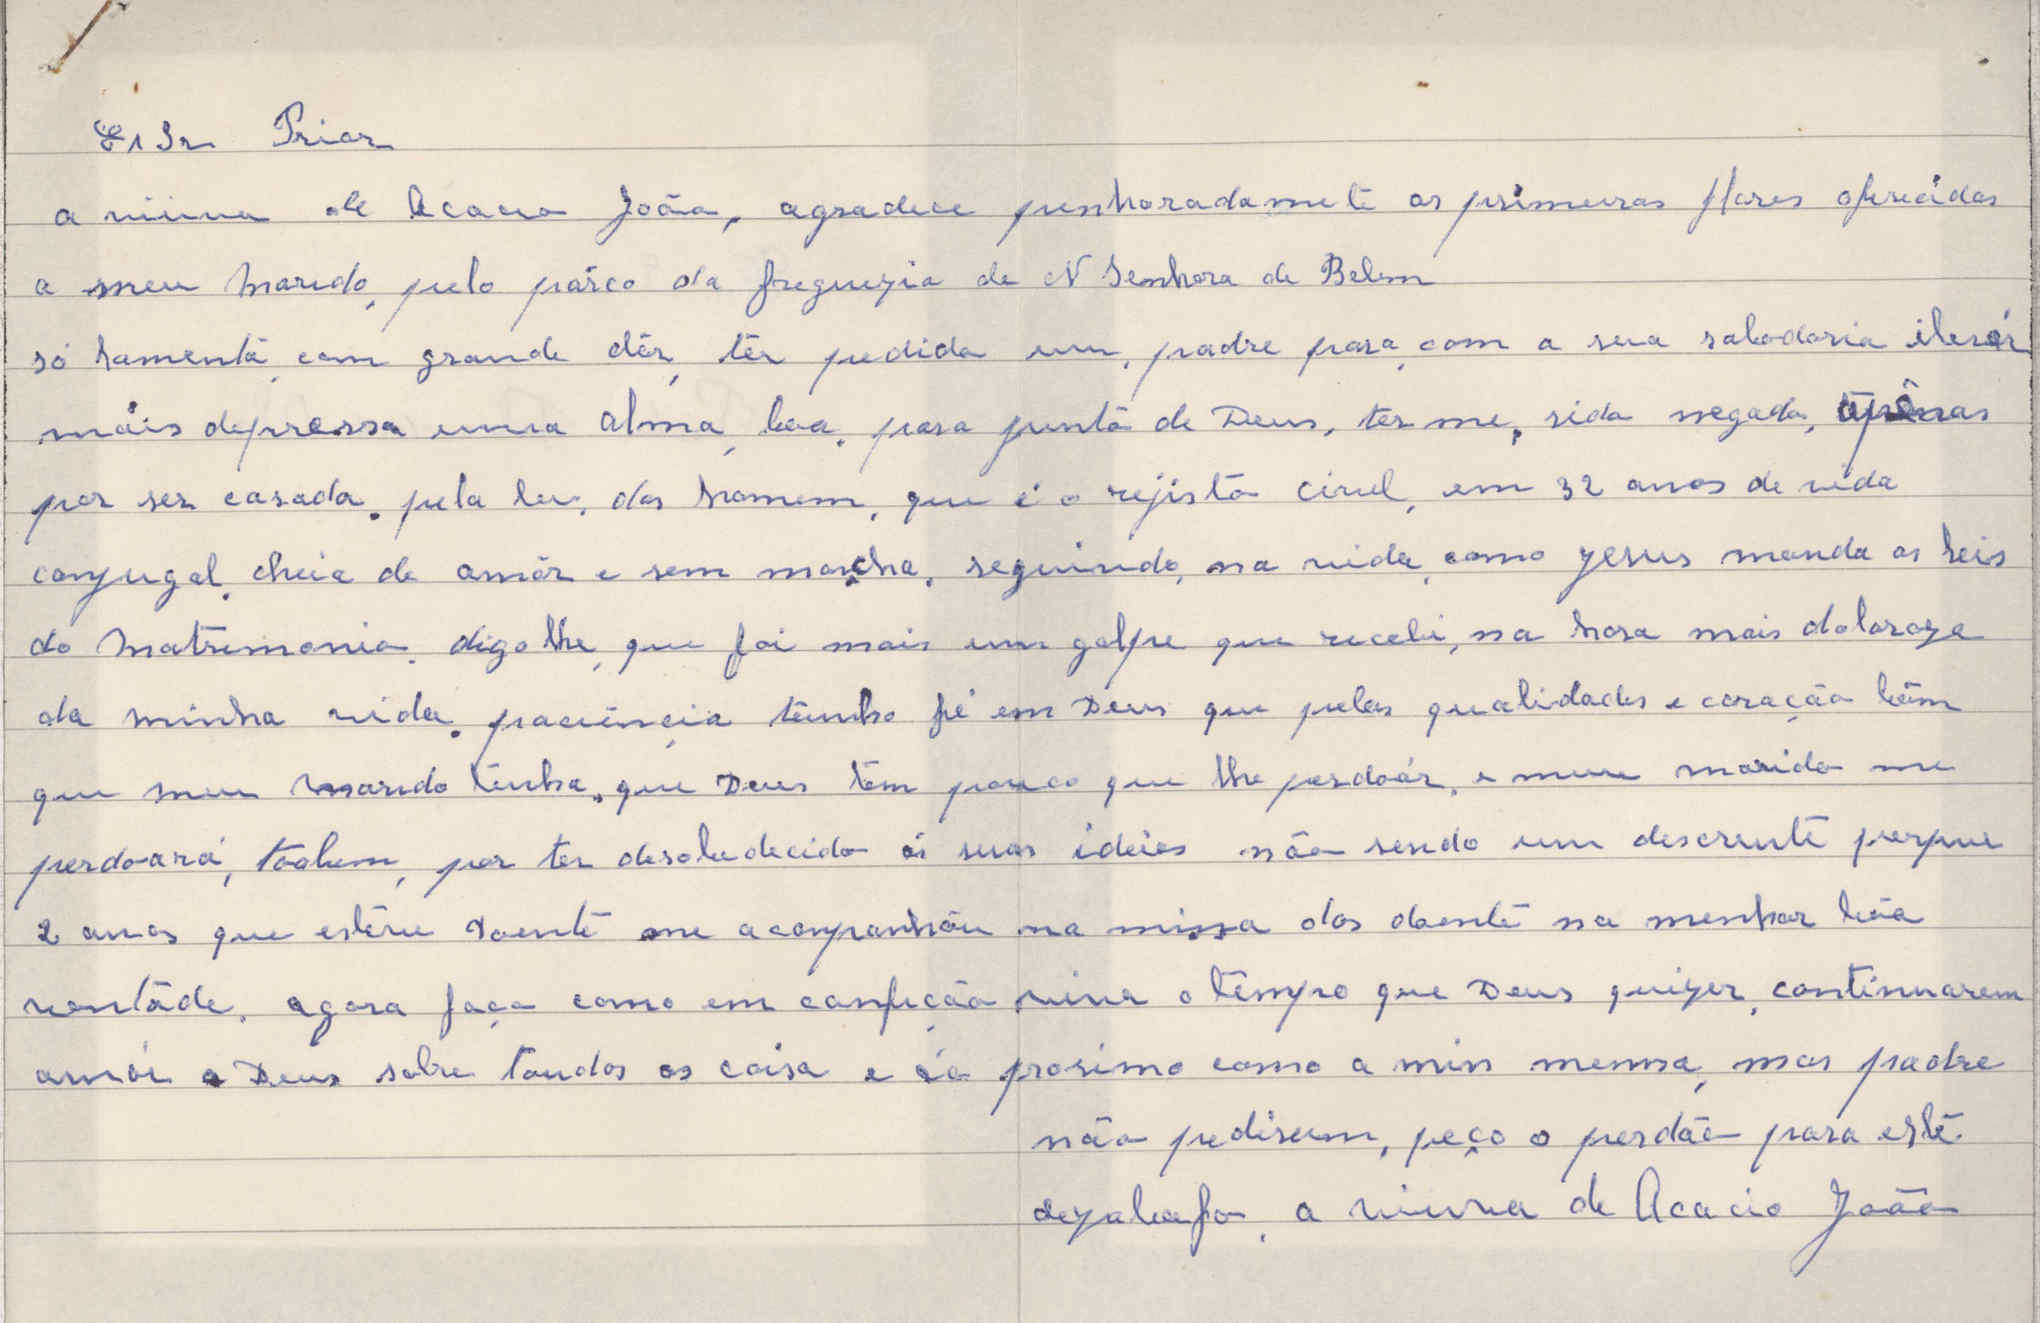 Ex Sr Prior
a viuva de Acacio João, agradece penhoradamete as primeiras flores oferecidas
a meu marido, pelo párco da freguezia de N Senhora de Belem
só lamentó, com grande dôr, têr pedido um, padre para, com a sua sabodaria
máis depressa uma alma, boa, para juntó de Deus, ter me, sido negado, apênas
por ser casada, pela lei, dos homem, que é o rejistó civil, em 32 anos de vida
conjugal, cheia de amôr e sem mancha, seguindo, na vida, como Jesus manda as leis
do matrimonio, digo lhe, que foi mais um golpe que recebi, na hora mais doloroza
da minha vida, paciência tênho fé em Deus que pelas qualidades e coração bôm
que meu marido tinha, que Deus têm pouco que lhe perdoár, e meu marido me
perdoará, também, por ter desobedecido ás suas idéias não sendo um descrente porque
2 anos que estêve doente me aconpanhôu na missa dos doente na menhor bôa
vontáde, agora faço como em confição viva o têmpo que Deus quizer, continuarem
amár a Deus sobre toudas as coisa e áo prosimo como a min mensa, mas padre
não pedirem, peço o perdão para estê
dezabafo, a viuva de Acacio João